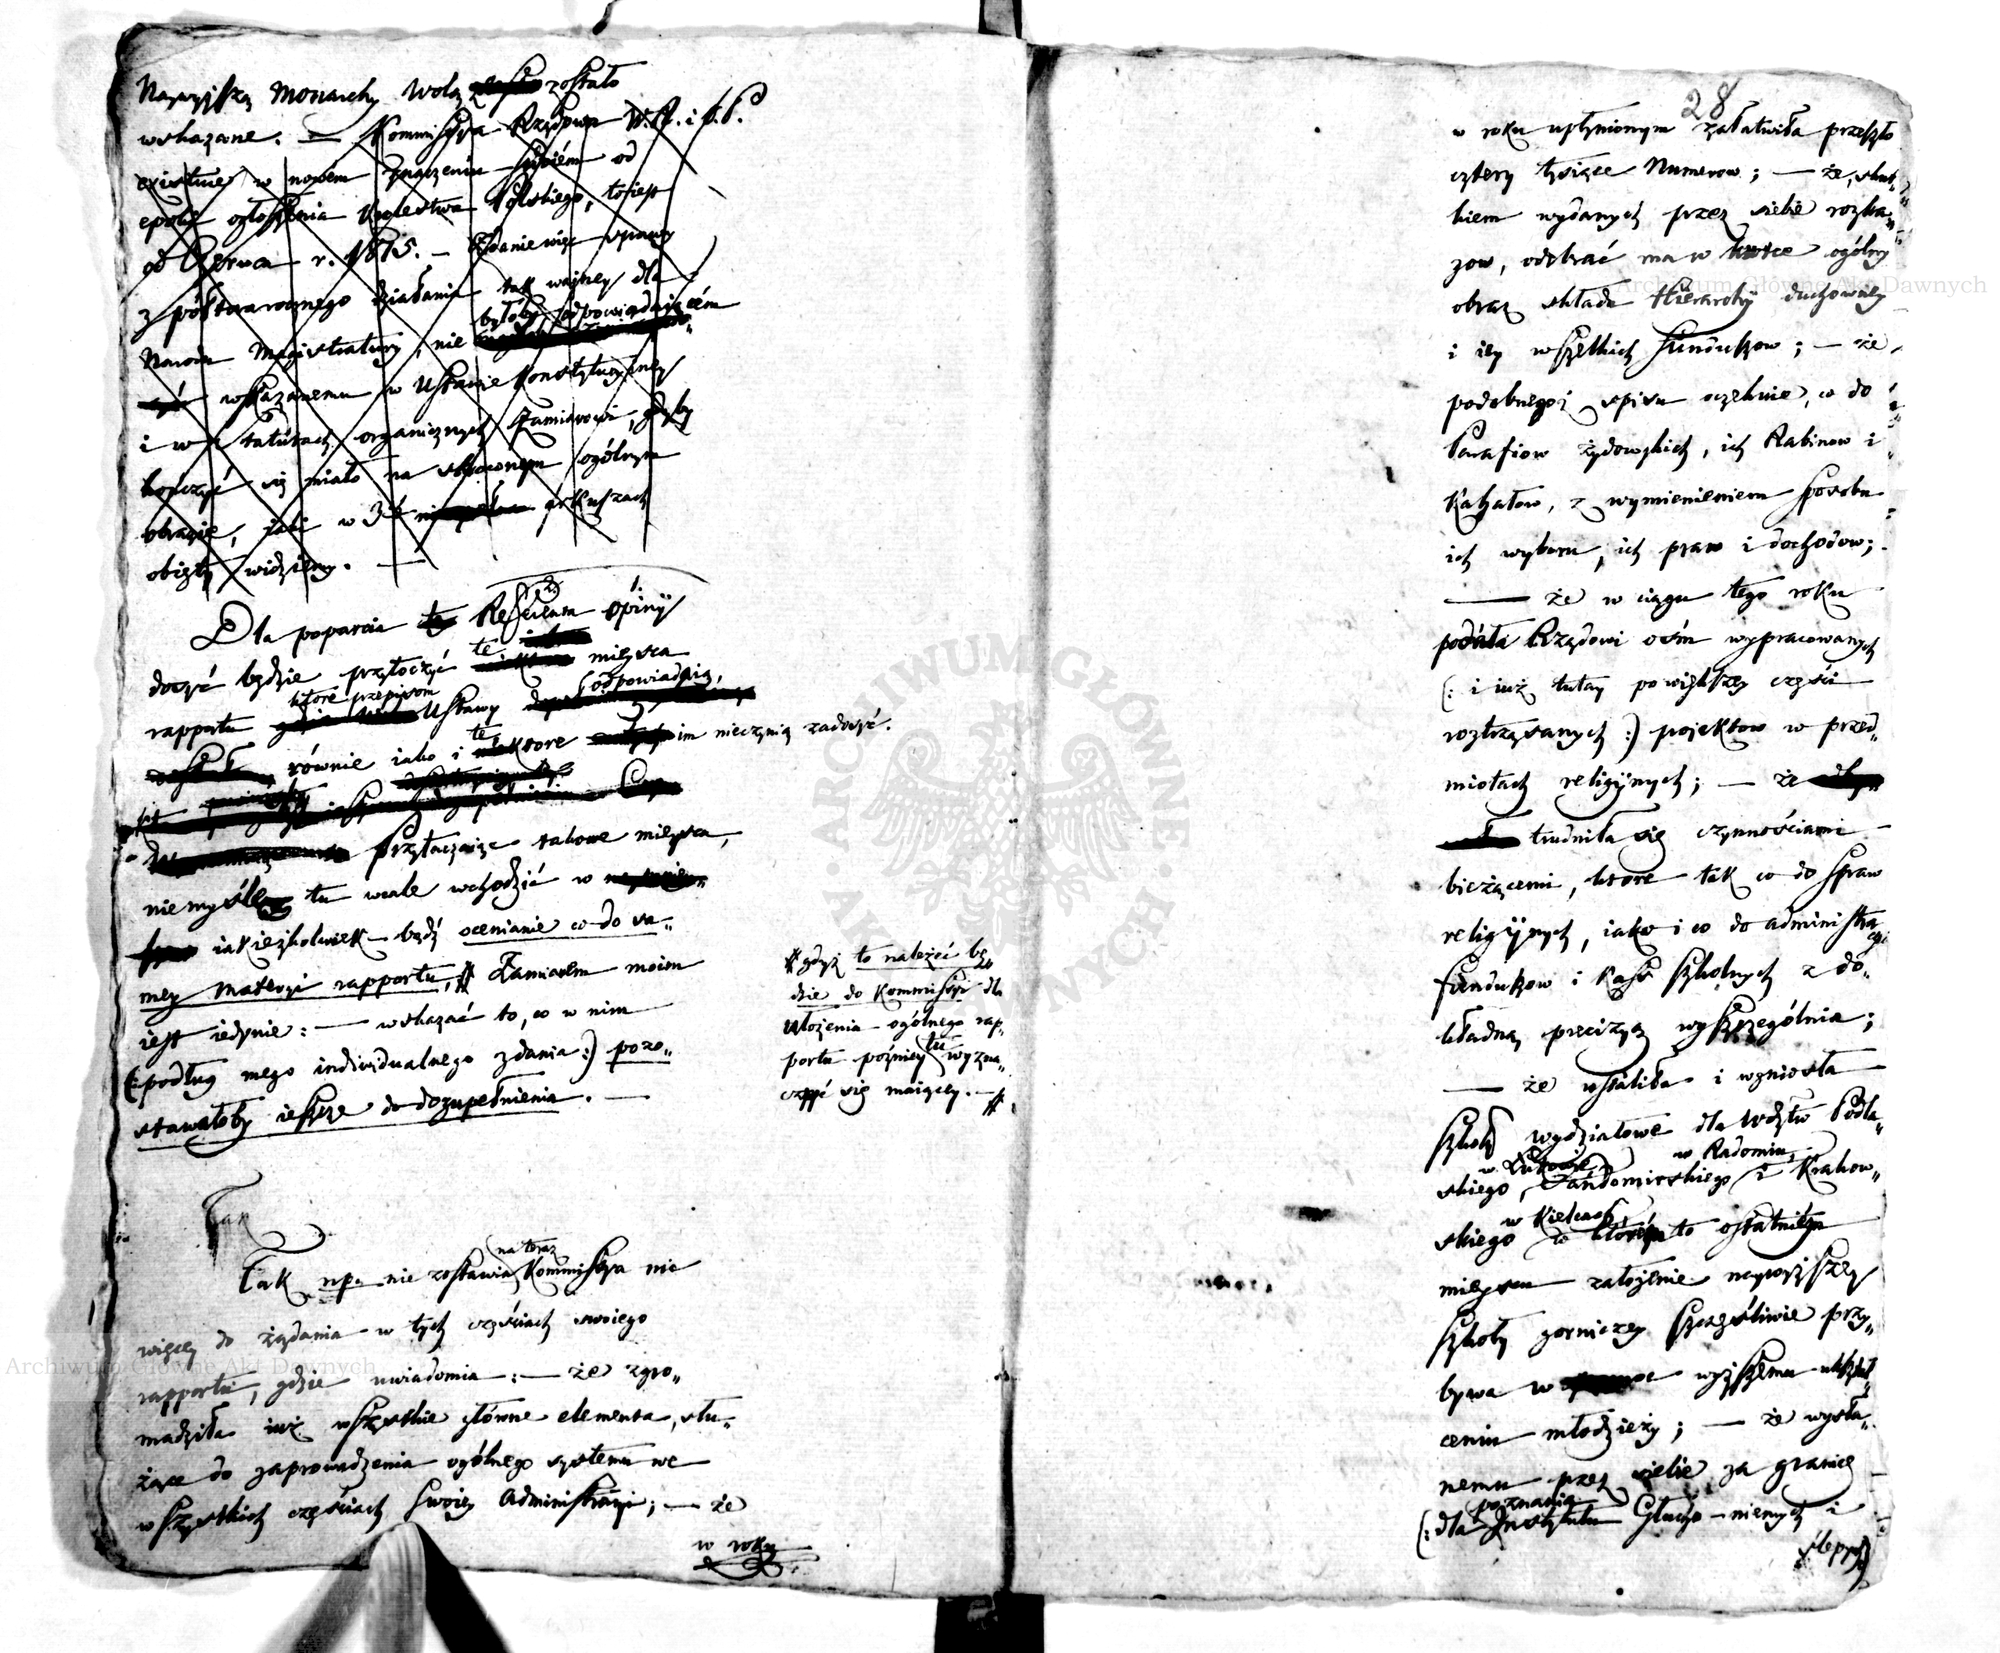 Naywyższą Monarchy Wolą zostało
wskazane. — Kommissya Rządowa W.R. i O.P.
existuie w nowém znaczeniu swoiém od
epoki ogłoszenia Królestwa Polskiego, to iest
od Czerwca r. 1815. — Zdanie więc sprawy
z półtorarocznego działania tak ważney dla
Narodu Magistratury, nie byłoby odpowiadaiącém
wskazanemu w Ustawie Konstytucyiney
i w Statutach organicznych zamiarowi, gdyby
kończyć się miało na skróconym ogólnym
obrazie, iaki w 3ch arkuszach
obięty widziemy. —
Dla poparcia tey Referenta opinij
dosyć będzie przytoczyć te mieysca
rapportu które przepisom Ustawy odpowiadaią,
równie iako i te które im nieczynią zadosyć.
Przytaczaiąc takowe mieysca,
niemyślę tu wcale wchodzić w
iakieżkolwiek bądź ocenianie co do sa„
mey materyi rapportu, # Zamiarem moim
iest iedynie: — wskazać to, co w nim
(: podług mego indiwidualnego zdania :) pozo„
stawałoby ieszcze do dozupełnienia. —
# gdyż to należeć bę„
dzie do Kommissyi dla
Ułożenia ogólnego rap„
portu poźniey tu wyzna„
czyć się maiącey. — #
Tak
Tak np. nie zostawia na teraz Kommissya nic
więcey do żądania w tych częściach swoiego
rapportu, gdzie uwiadomia: — że zgro„
madziła iuż wszystkie główne elementa, słu„
żące do zaprowadzenia ogólnego systematu we
wszystkich częściach swoiey Administracyi; — że
w roku
28
w roku upłynionym załatwiła przeszło
cztery tysiące Numerow; — że, skut„
kiem wydanych przez siebie rozka„
zow, odebrać ma w krotce ogólny
obraz składu Hierarchij duchowney
i iey wszelkich funduszow; — że
podobnegoż spisu oczekuie, co do
Parafiow żydowskich, ich Rabinow i
Kahałow, z wymienieniem sposobu
ich wyboru, ich praw i dochodow;
— że w ciągu tego roku
podała Rządowi ośm wypracowanych
(: i iuż tutay po większey części
roztrząsanych :) projektow w przed„
miotach religijnych; — że
trudniła się czynnościami
bieżącemi, ktore tak co do spraw
religijnych, iako i co do administracyi
funduszow i Kass szkolnych z do„
kładną precizyą wyszczególnia;
— że ustaliła i wzniosła
Szkoły wydziałowe dla Wdztw Podla„
skiego w Łukowie, Sandomirskiego w Radomiu, i Krakow„
skiego w Kielcach, w którém to ostatniém
mieyscu założenie naywyższey
Szkoły gorniczey szczęśliwie przy„
bywa w wyższemu ukształ„
ceniu młodzieży; — że wysła„
nemu przez siebie za granicę
(: dla poznania Instytutu Głucho-niemych i
ślepych
Archiwum Główne Akt Dawnych
Archiwum Główne Akt Dawnych
ARCHIWUM GŁÓWNE AKT DAWNYCH